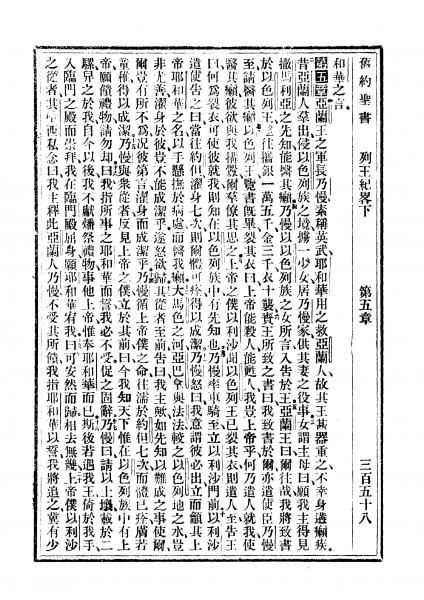 舊約聖書 列王紀畧下 第五章 三百五十八
和華之言
第五章亞蘭王之軍長乃慢素稱英武耶和華用之救亞蘭人故其王甚器重之不幸身遘癩疾
昔亞蘭人羣出侵以色列族之境擄一少女居乃慢家供其妻之役事女謂主母曰願我主得見
撒馬利亞之先知能醫其癩乃慢以以色列族之女所言入告於王亞蘭王曰爾往哉我將致書
於以色列王遂往攜銀一萬五千金三千衣十襲賚王所致之書曰我致書於爾亦遣使臣乃慢
至請醫其癩以色列王覽書旣畢裂其衣曰上帝能殺人能甦人我豈上帝乎何乃遣人就我使
醫其癩彼欲與我搆釁爾羣僚其思之上帝之僕以利沙聞以色列王已裂其衣則遣人至告王
曰何爲裂衣可使彼就我則知在以色列族中有先知也乃慢率車騎至立以利沙門前以利沙
遣使告之曰當往約但濯身七次則爾體可痊得以成潔乃慢怒曰我意謂彼必出立而籲其上
帝耶和華之名以手懸撫於病處而醫我癩大馬色之河亞巴拿與法法較之以色列地之水豈
非尤善濯身於彼豈不能成潔乎遂怒欲歸其從者至前告曰我主歟如先知以難成之事使爾
爾豈有所不爲況彼第言濯身而成潔乎乃慢循上帝僕之命往濡於約但七次而體已痊膚若
童稚得以成潔乃慢與衆從者反見上帝之僕立於其前曰今我知天下惟在以色列族中有上
帝願饋禮物請勿卻曰我指所事之耶和華而誓我必不受促之固辭乃慢曰請以土壤載於二
騾畀之於我自今以後我不獻燔祭禮物事他上帝惟奉耶和華而已斯後若遇我王倚於我手
入臨門之殿而崇拜我在臨門殿屈身願耶和華宥我曰可安然而歸相去無幾上帝僕以利沙
之從者其哈西私念曰我主釋此亞蘭人乃慢不受其所饋我指耶和華以誓我將追之冀有少